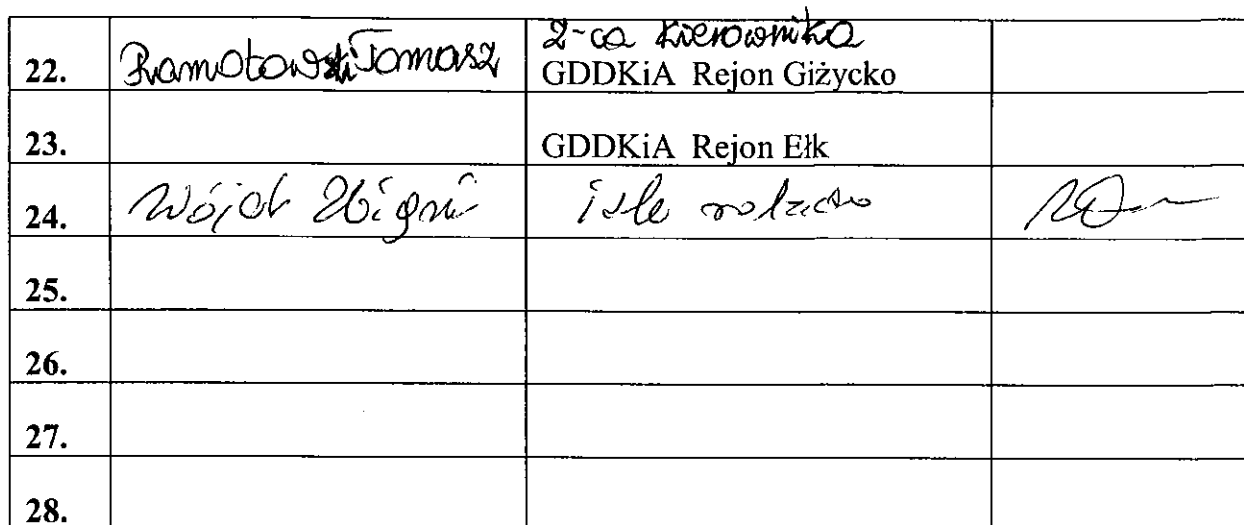 22. Ramotowski Tomasz Z-ca Kierownika
GDDKiA Rejon Giżycko
23. GDDKiA Rejon Ełk
24. Wójcik
25.
26.
27.
28.